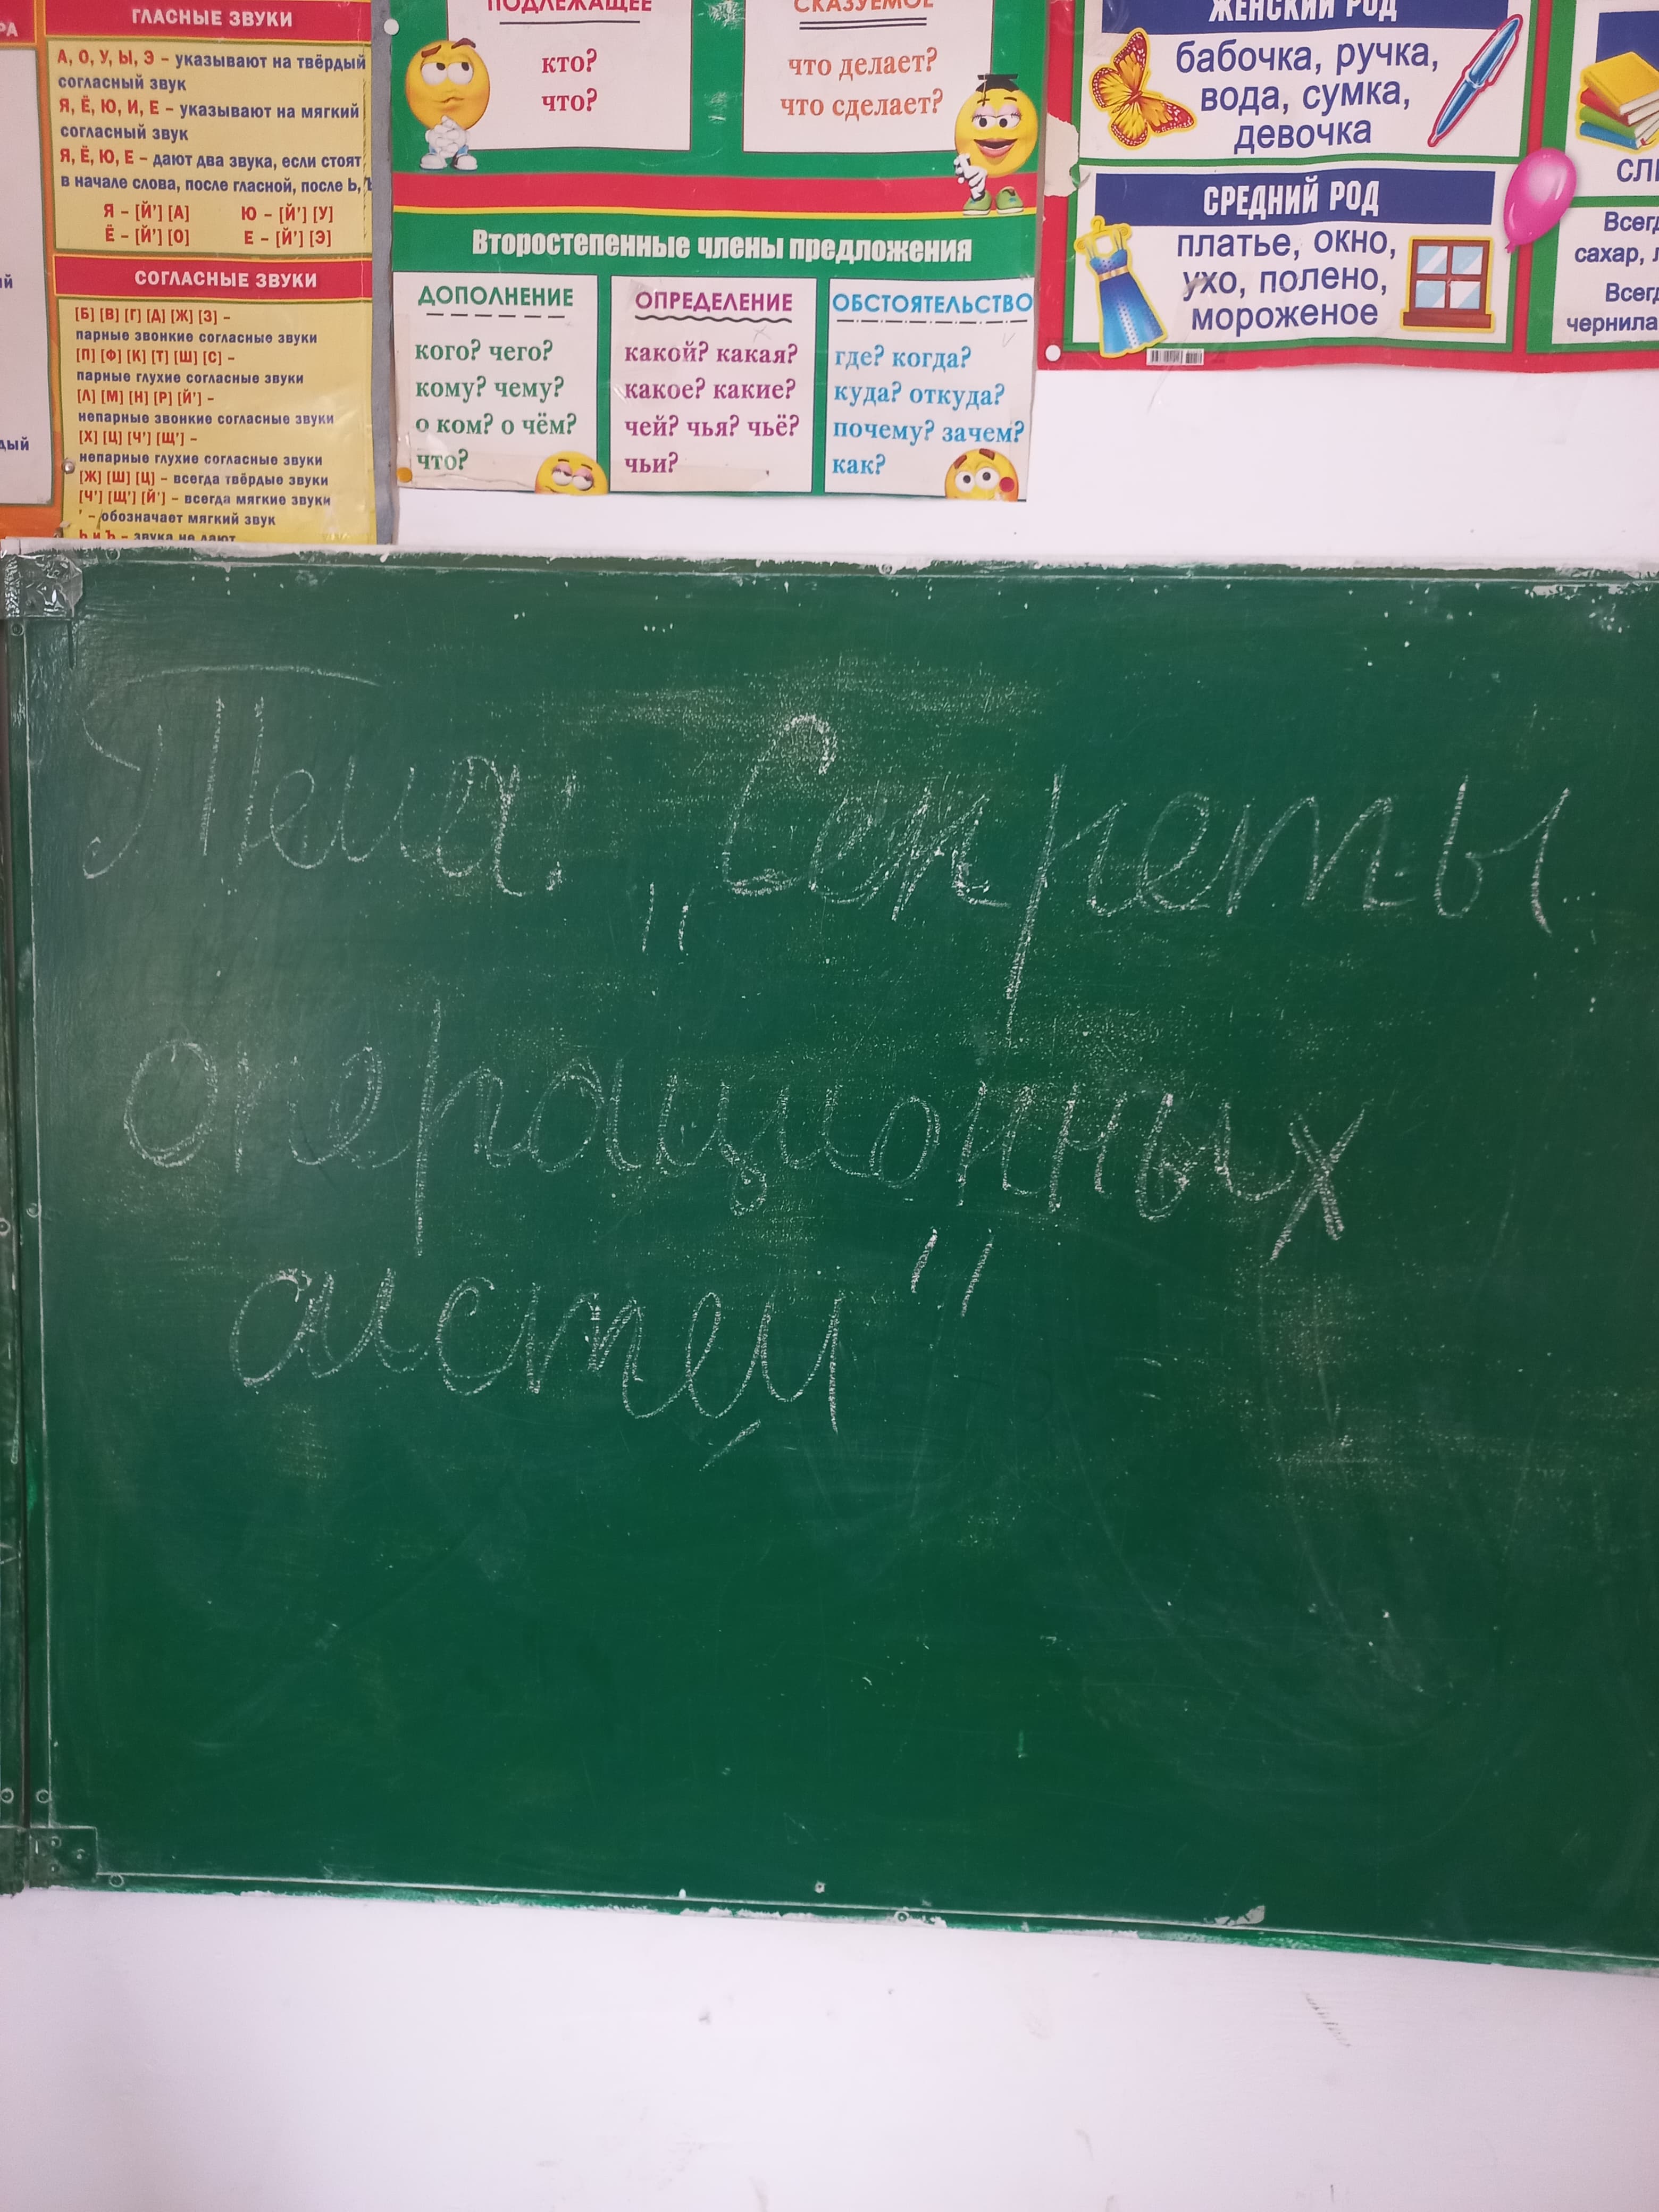 РА
ГЛАСНЫЕ ЗВУКИ
А, О, У, Ы, Э – указывают на твёрдый
согласный звук
Я, Ё, Ю, И, Е – указывают на мягкий
согласный звук
Я, Ё, Ю, Е – дают два звука, если стоят
в начале слова, после гласной, после Ь, Ъ
Я – [Й'] [А] Ю – [Й'] [У]
Ё – [Й'] [О] Е – [Й'] [Э]
СОГЛАСНЫЕ ЗВУКИ
[Б] [В] [Г] [Д] [Ж] [З] –
парные звонкие согласные звуки
[П] [Ф] [К] [Т] [Ш] [С] –
парные глухие согласные звуки
[Л] [М] [Н] [Р] [Й'] –
непарные звонкие согласные звуки
[Х] [Ц] [Ч'] [Щ'] –
непарные глухие согласные звуки
[Ж] [Ш] [Ц] – всегда твёрдые звуки
[Ч'] [Щ'] [Й'] – всегда мягкие звуки
' – обозначает мягкий звук
Ь и Ъ – звука не дают
ПОДЛЕЖАЩЕЕ
кто?
что?
СКАЗУЕМОЕ
что делает?
что сделает?
Второстепенные члены предложения
ДОПОЛНЕНИЕ
кого? чего?
кому? чему?
о ком? о чём?
что?
ОПРЕДЕЛЕНИЕ
какой? какая?
какое? какие?
чей? чья? чьё?
чьи?
ОБСТОЯТЕЛЬСТВО
где? когда?
куда? откуда?
почему? зачем?
как?
ЖЕНСКИЙ РОД
бабочка, ручка,
вода, сумка,
девочка
СРЕДНИЙ РОД
платье, окно,
ухо, полено,
мороженое
сахар,
чернила
Тема: „Секреты
операционных
систем"